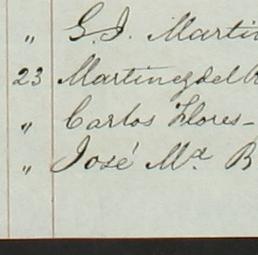 " G. I. Marti
23 Martinez del
" Carlos Flores-
" José Ma. B